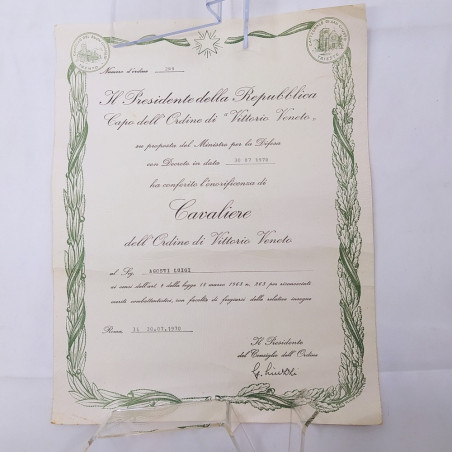 Numero d'ordine
Il Presidente della Repubblica
Capo dell'Ordine di "Vittorio Veneto"
su proposta del Ministro per la Difesa
con Decreto in data 20 07 1970
ha conferito l'onorificenza di
Cavaliere
dell'Ordine di Vittorio Veneto
al Sig. AGOSTI LUIGI
ai sensi dell'art. 4 della legge 18 marzo 1968 n. 263 per riconosciuti
meriti combattentistici, con facoltà di fregiarsi della relativa insegna
Roma, li 20.07.1970
Il Presidente
del Consiglio dell'Ordine